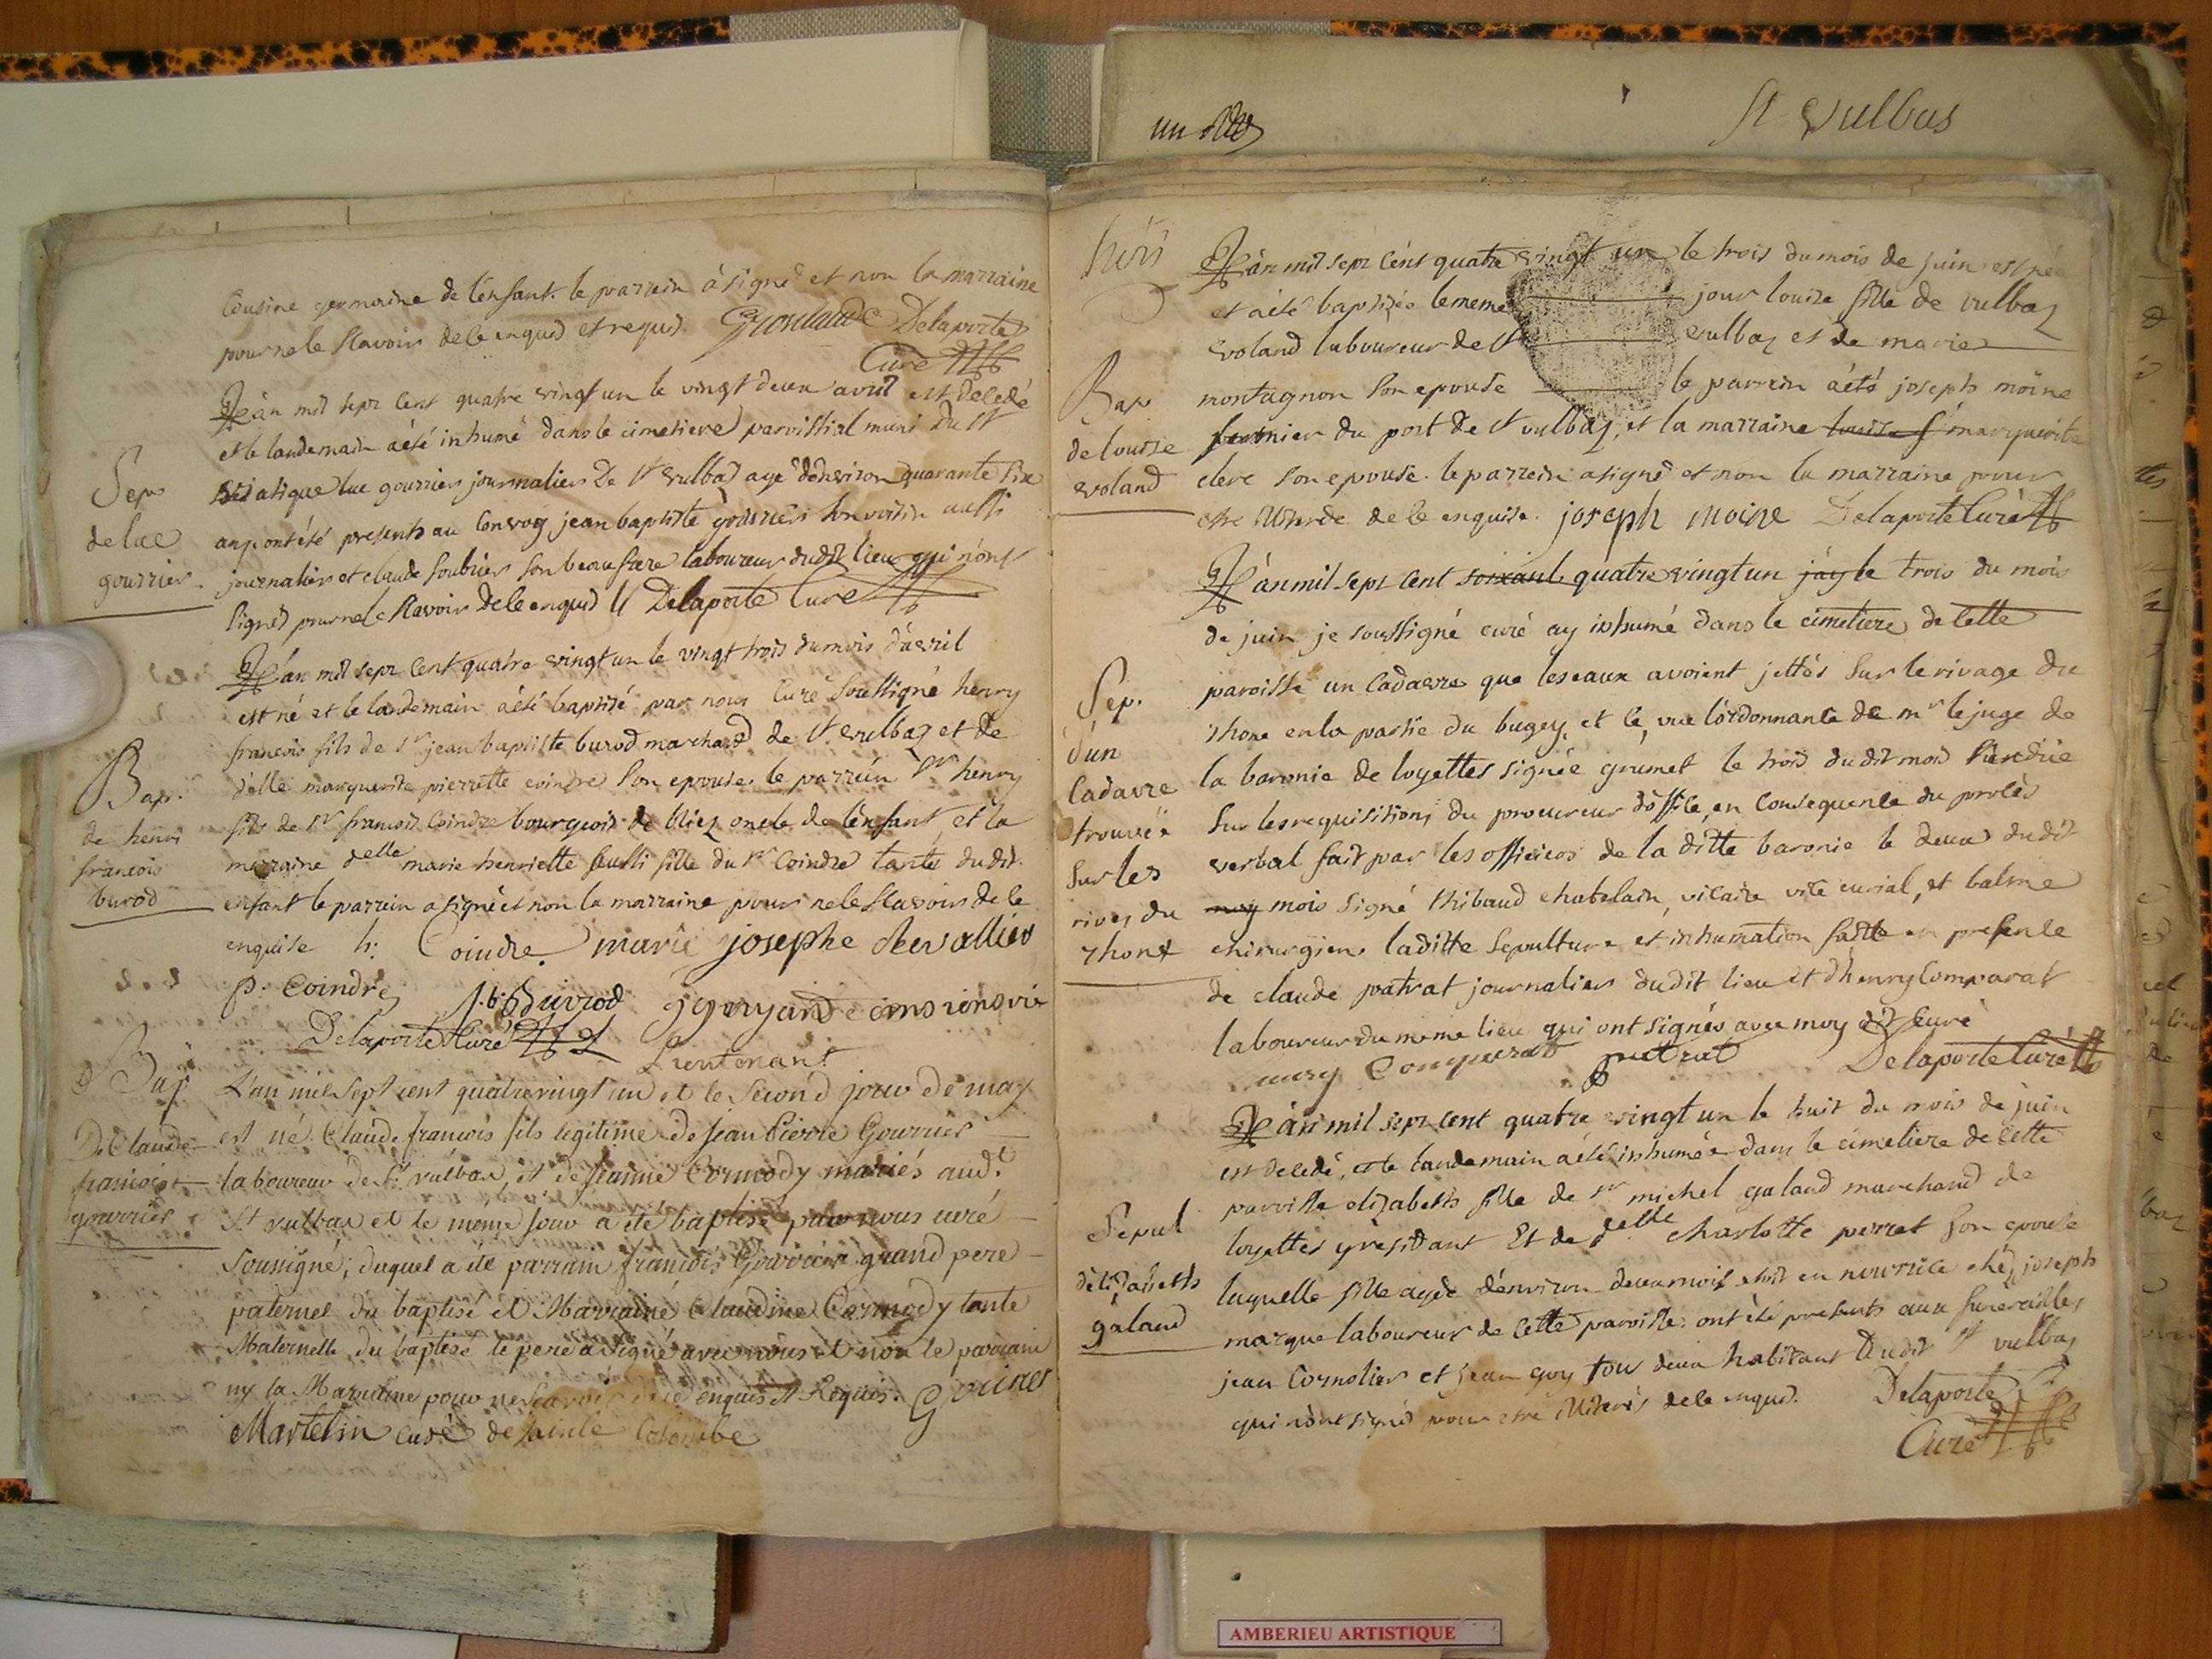 un
St Vulbas
Cousine germaine de l'enfant. le parrein à signé et non la marraine
pour ne le Scavoir de ce enquis et requis. Delaporte
Curé
L'an mil sept cent quatre vingt un le vingt deux avril est decedé
et le landemain a été inhumé dans le cimetiere parroissial muni du St
Sep.
viatique luc gourrier journalier de St vulbas agé d'environ quarante six
de luc
ans ont été presents au convoy jean baptiste gourrier son voisin aussi
gourrier
journalier et claude Soubrier son beau frere laboureur dudit lieu qui n'ont
Signés pour ne le Scavoir de ce enquis Delaporte Curé
L'an mil sept cent quatre vingt un le vingt trois du mois d'avril
est né et le landemain a été baptisé par nous Curé Soussigné henry
francois fils de Sr jean baptiste burod marchand de St vulbaz et de
Bap.
delle marguerite pierrette coindre Son epouse. le parrein Sr henry
de henri
fils de Sr francois Coindre bourgeois de bliez oncle de l'enfant, et la
francois
marraine delle marie henriette aussi fille du Sr Coindre tante dudit
burod
enfant le parrein a signé et non la marraine pour ne le Scavoir de ce
enquise h: Coindre marie josephe chevallier
p. Coindre J.b. Buvrod
Delaporte Curé Lieutenant
Bap.
L'an mil sept cent quatre vingt un et le Second jour de may
De Claude
est né Claude francois fils legitime de Jean Pierre Gourrier
francois
laboureur de St. vulbas, et de Jeanne Cormody mariés aud.t
gourrier
St vulbas et le même jour a été baptisé par nous curé
soussigné; duquel a été parrain francois Gourrier grand pere
paternel du baptisé et Marraine Claudine Cormody tante
Maternelle du baptisé le pere a signé avec nous et non le parrain
ny la Marraine pour ne scavoir de ce enquis et Requis. Gourier
Martelin curé de sainte Colombe
trois
L'an mil sept cent quatre vingt un le trois du mois de juin est née
et a été baptisée le meme jour louise fille de vulbaz
voland laboureur de St vulbaz et de marie
Bap
montagnon Son epouse le parrein a été joseph moine
de louise
fermier du port de St vulbaz, et la marraine louise f marguerite
voland
clerc son epouse. le parrein a signé et non la marraine pour
etre illiterée de ce enquise. joseph moine Delaporte Curé
L'an mil sept cent soixant quatre vingt un j'ay le trois du mois
de juin je soussigné curé ay inhumé dans le cimetiere de cette
Sep.
paroisse un Cadavre que les eaux avoient jettés sur le rivage du
d'un
rhone en la partie du bugey, et ce, vue l'ordonnance de mr le juge de
Cadavre
la baronie de loyettes signée grumet le trois dudit mois rendue
trouvée
Sur les requisitions du procureur d'office, en Consequence du procès
sur les
verbal fait par les officiers de la ditte baronie le deux dudit
rives du
moy mois signé thibaud chatelain, vicaire vice curial, et balme
rhone
chirurgien. laditte Sepulture et inhumation faitte en presence
de claude patrat journalier dudit lieu et d'henry Comparat
laboureur du meme lieu qui ont signés avec moy dit Curé
patrat Delaporte Curé
L'an mil sept cent quatre vingt un le huit du mois de juin
est decedé, et le landemain a été inhumée dans le cimetiere de cette
parroisse elizabeth fille de Sr michel galand marchand de
Sepul
loyettes y residant Et de delle charlotte perret son epouse
d'elizabeth
laquelle fille agée d'environ deux mois etoit en nourrice chez joseph
galand
marque laboureur de Cette paroisse. ont été presents aux funerailles
jean Cormolier et jean guy tou deux habitant dudit St vulbas
qui n'ont signé pour etre illiterés de ce enquis. Delaporte
Curé
AMBERIEU ARTISTIQUE